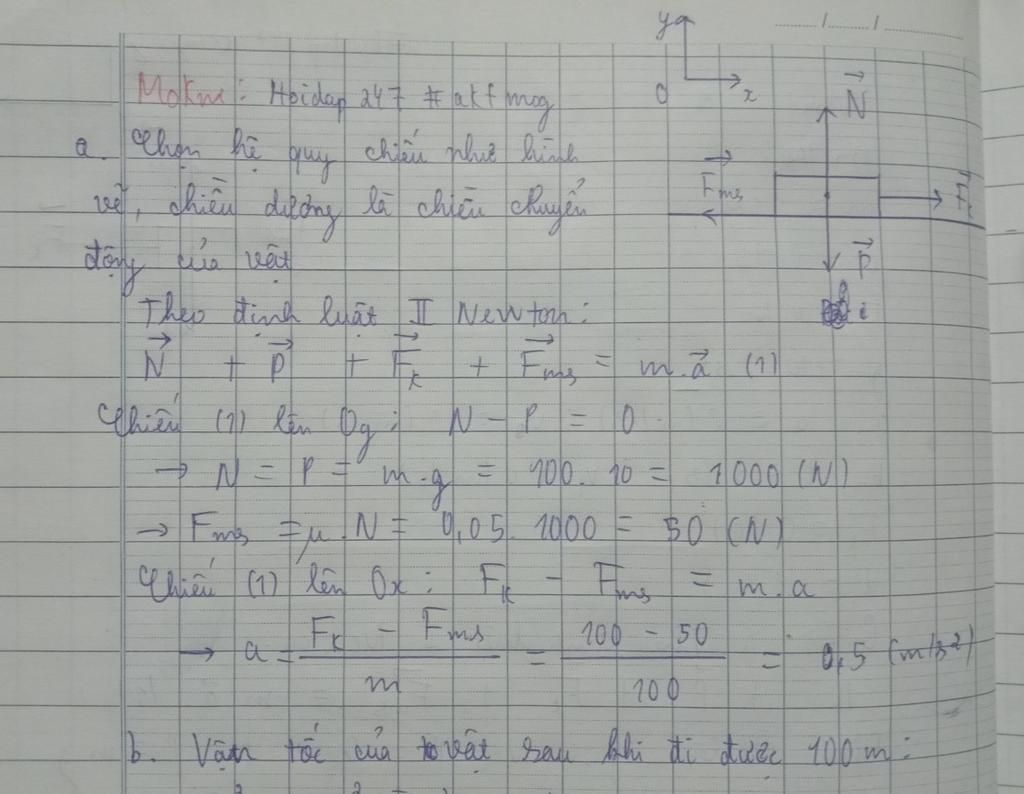 Mokm: Hoidap 247 # akfmog
a. Chọn hệ quy chiếu như hình
vẽ, chiều dương là chiều chuyển
động của vật
y
O
x
N
Fms
Fk
P
Theo định luật II Newton:
N + P + Fk + Fms = m.a (1)
Chiếu (1) lên Oy: N - P = 0
→ N = P = m.g = 100. 10 = 1000 (N)
→ Fms = μ.N = 0,05. 1000 = 50 (N)
Chiếu (1) lên Ox: Fk - Fms = m.a
→ a = (Fk - Fms) / m = (100 - 50) / 100 = 0,5 (m/s²)
b. Vận tốc của vật sau khi đi được 100m: